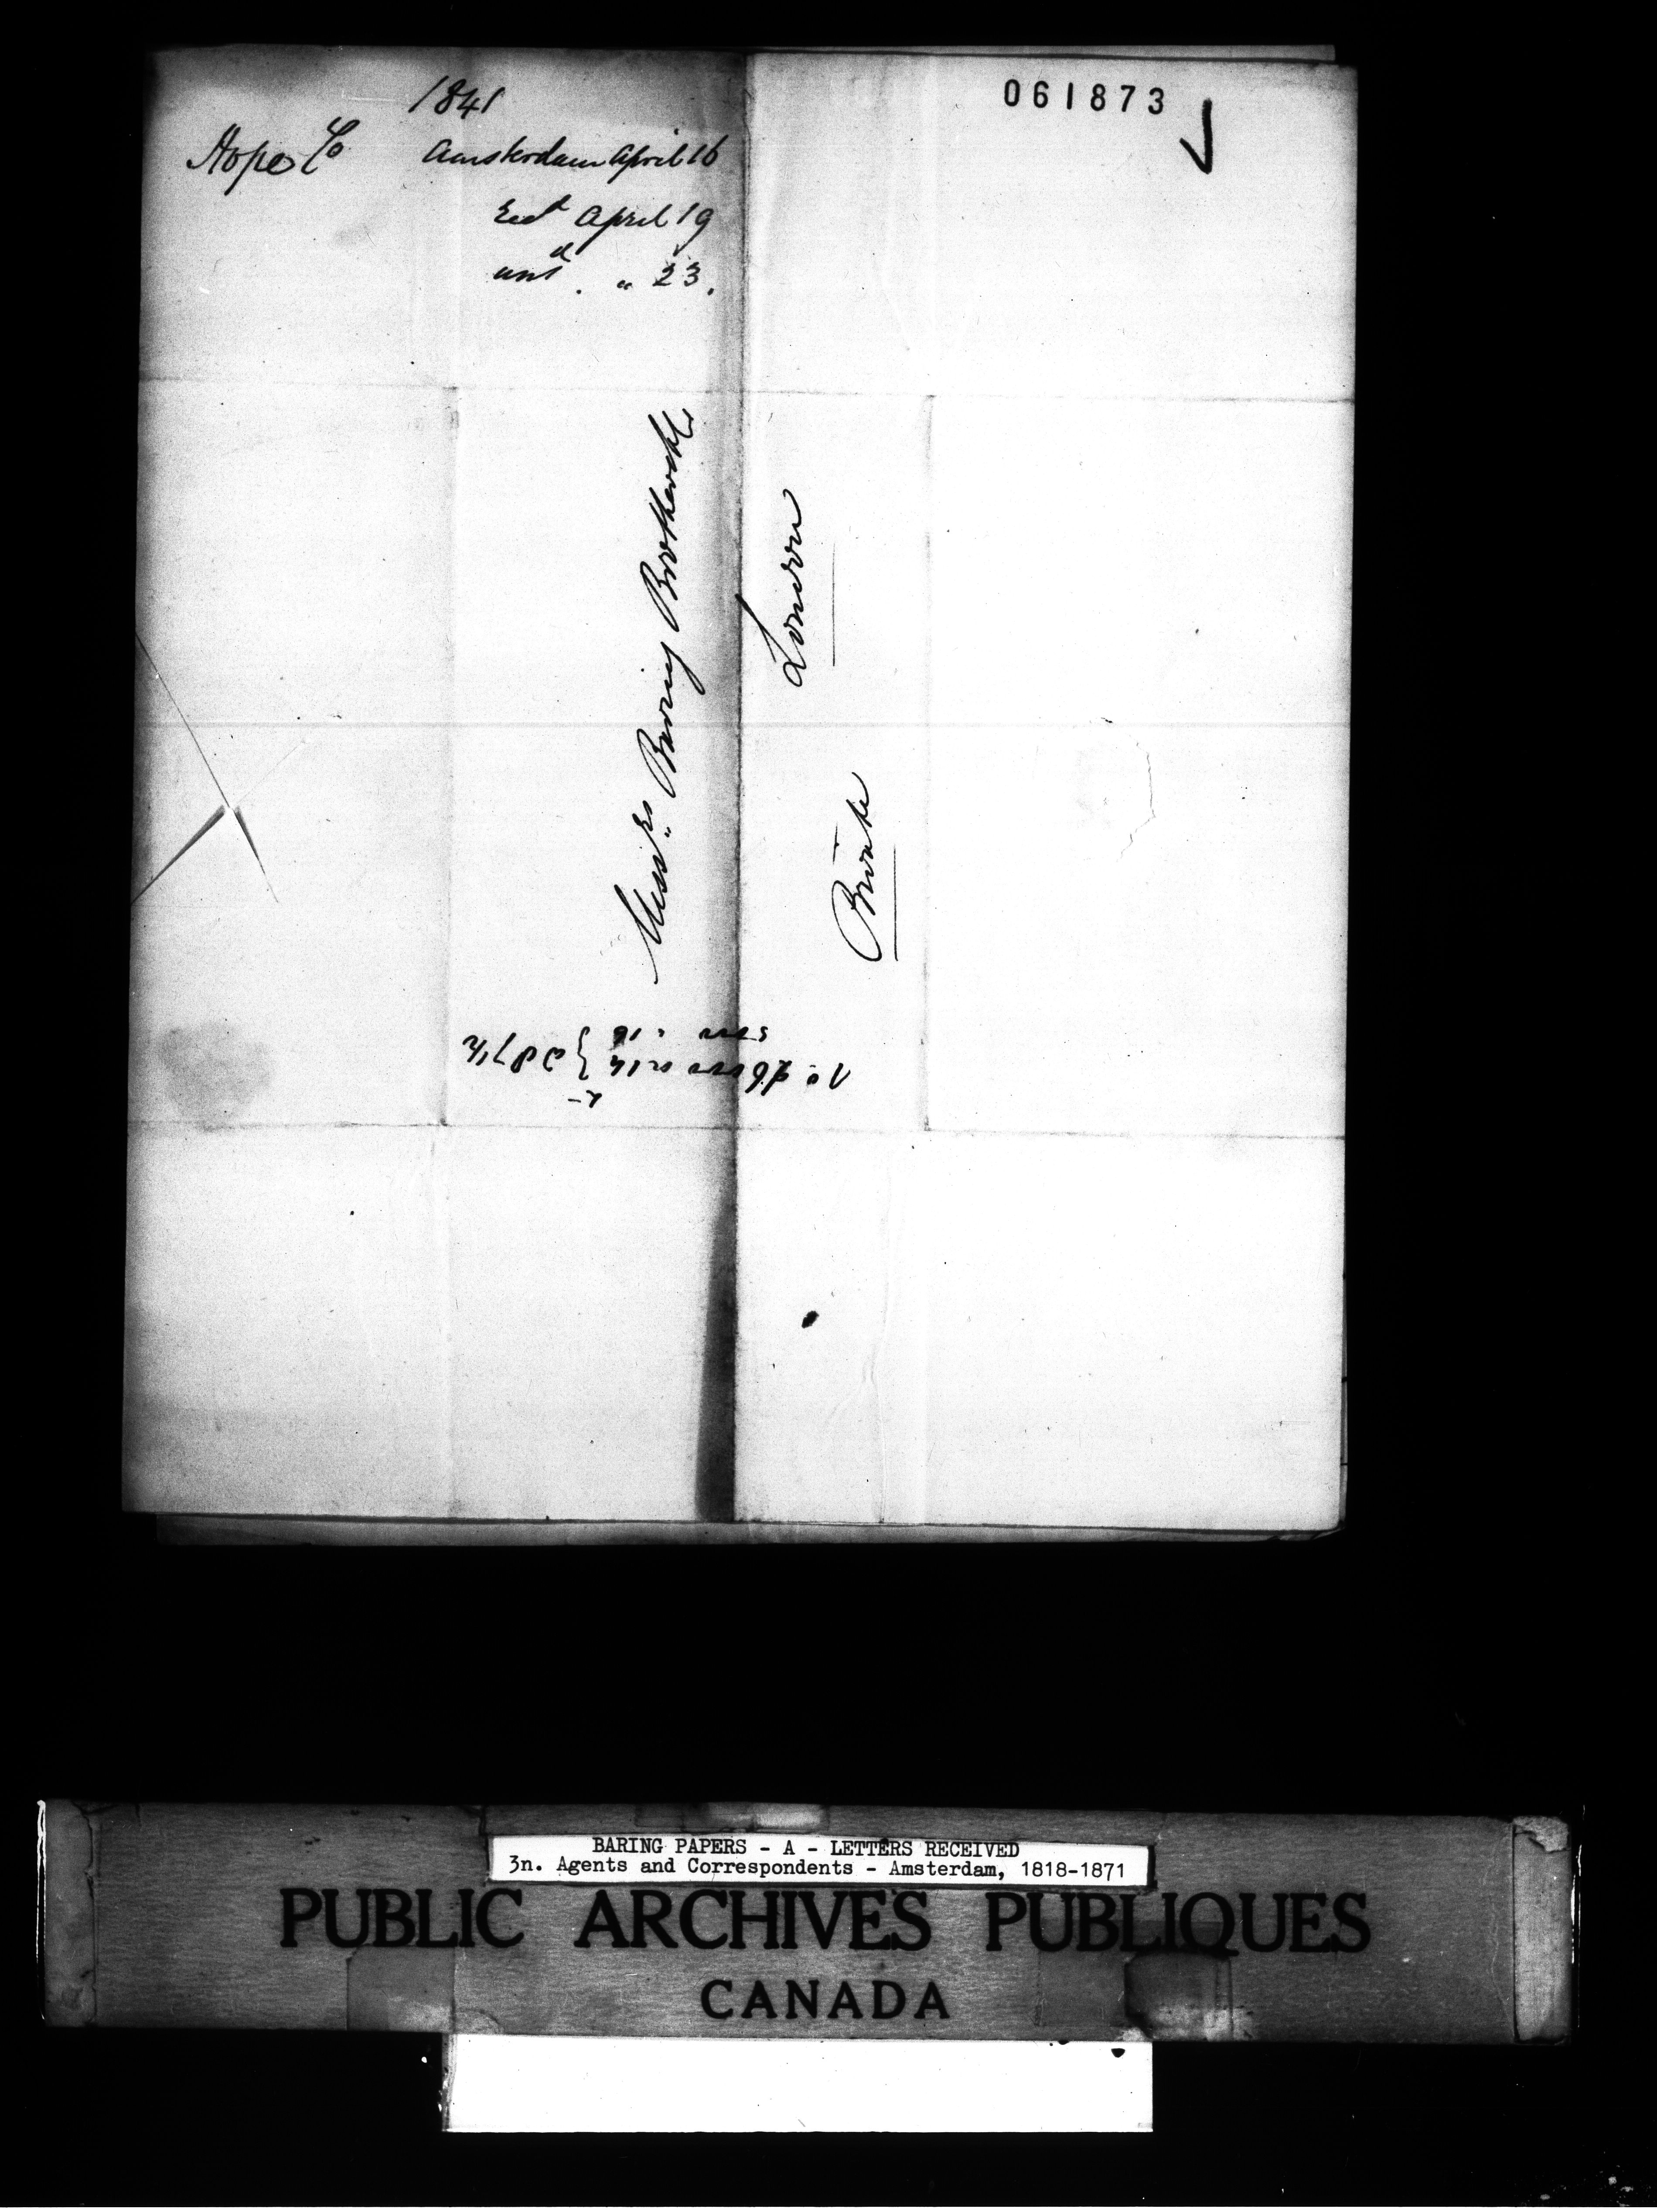 1841
061873
Hope & Co
Amsterdam April 16
Recd April 19
ansd. " 23.
Messrs. Baring Brothers & Co.
London
Private
BARING PAPERS - A - LETTERS RECEIVED
3n. Agents and Correspondents - Amsterdam, 1818-1871
PUBLIC ARCHIVES PUBLIQUES
CANADA